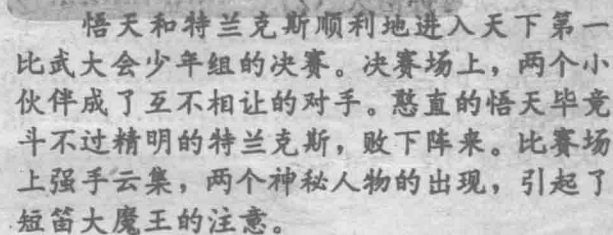 悟天和特兰克斯顺利地进入天下第一
比武大会少年组的决赛。决赛场上，两个小
伙伴成了互不相让的对手。憨直的悟天毕竟
斗不过精明的特兰克斯，败下阵来。比赛场
上强手云集，两个神秘人物的出现，引起了
短笛大魔王的注意。